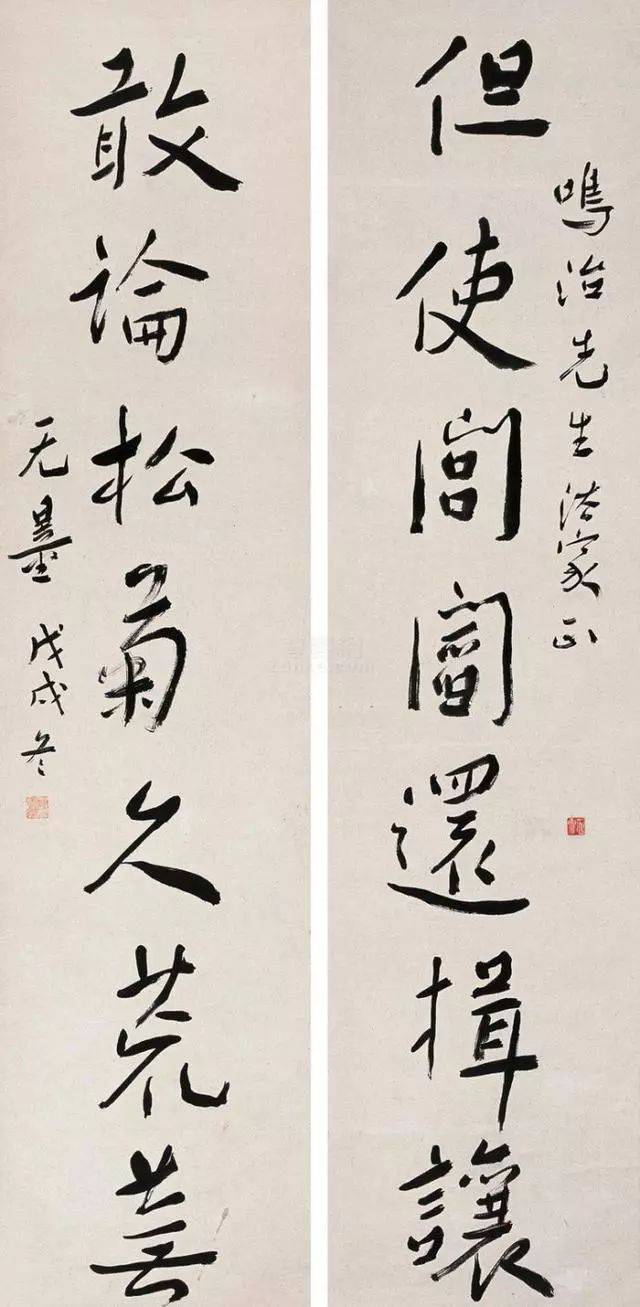 但使閭閻還揖讓
鳴治先生法家正
敢論松菊久荒蕪
无量 戊戌冬